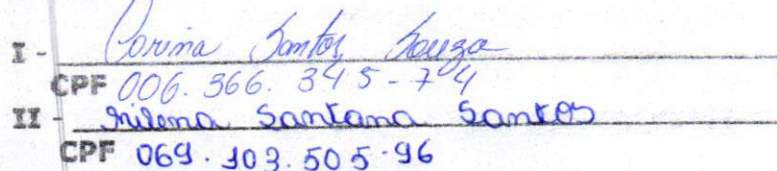 I - Corina Santos Souza
CPF 006.366.345-74
II - Milena Santana Santos
CPF 069.103.505-96